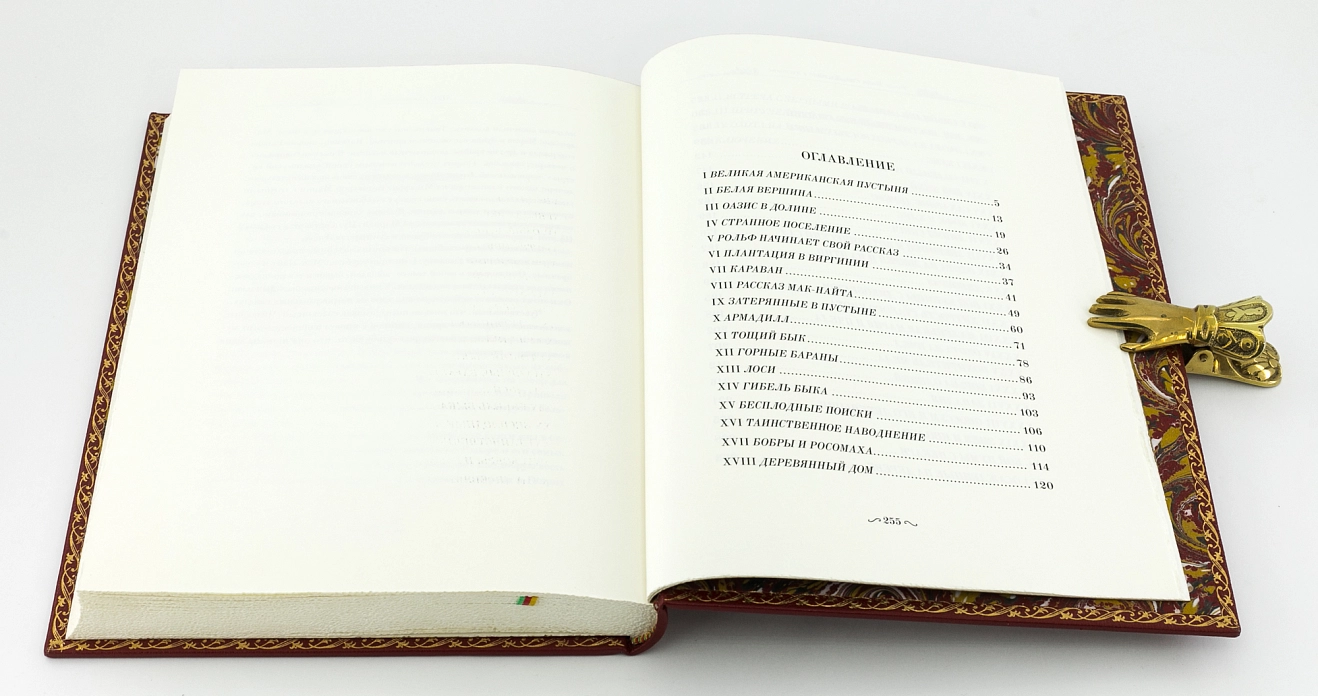 ОГЛАВЛЕНИЕ
I ВЕЛИКАЯ АМЕРИКАНСКАЯ ПУСТЫНЯ ........................ 5
II БЕЛАЯ ВЕРШИНА ........................ 13
III ОАЗИС В ДОЛИНЕ ........................ 19
IV СТРАННОЕ ПОСЕЛЕНИЕ ........................ 26
V РОЛЬФ НАЧИНАЕТ СВОЙ РАССКАЗ ........................ 34
VI ПЛАНТАЦИЯ В ВИРГИНИИ ........................ 37
VII КАРАВАН ........................ 41
VIII РАССКАЗ МАК-НАЙТА ........................ 49
IX ЗАТЕРЯННЫЕ В ПУСТЫНЕ ........................ 60
X АРМАДИЛЛ ........................ 71
XI ТОЩИЙ БЫК ........................ 78
XII ГОРНЫЕ БАРАНЫ ........................ 86
XIII ЛОСИ ........................ 93
XIV ГИБЕЛЬ БЫКА ........................ 103
XV БЕСПЛОДНЫЕ ПОИСКИ ........................ 106
XVI ТАИНСТВЕННОЕ НАВОДНЕНИЕ ........................ 110
XVII БОБРЫ И РОСОМАХА ........................ 114
XVIII ДЕРЕВЯННЫЙ ДОМ ........................ 120
255